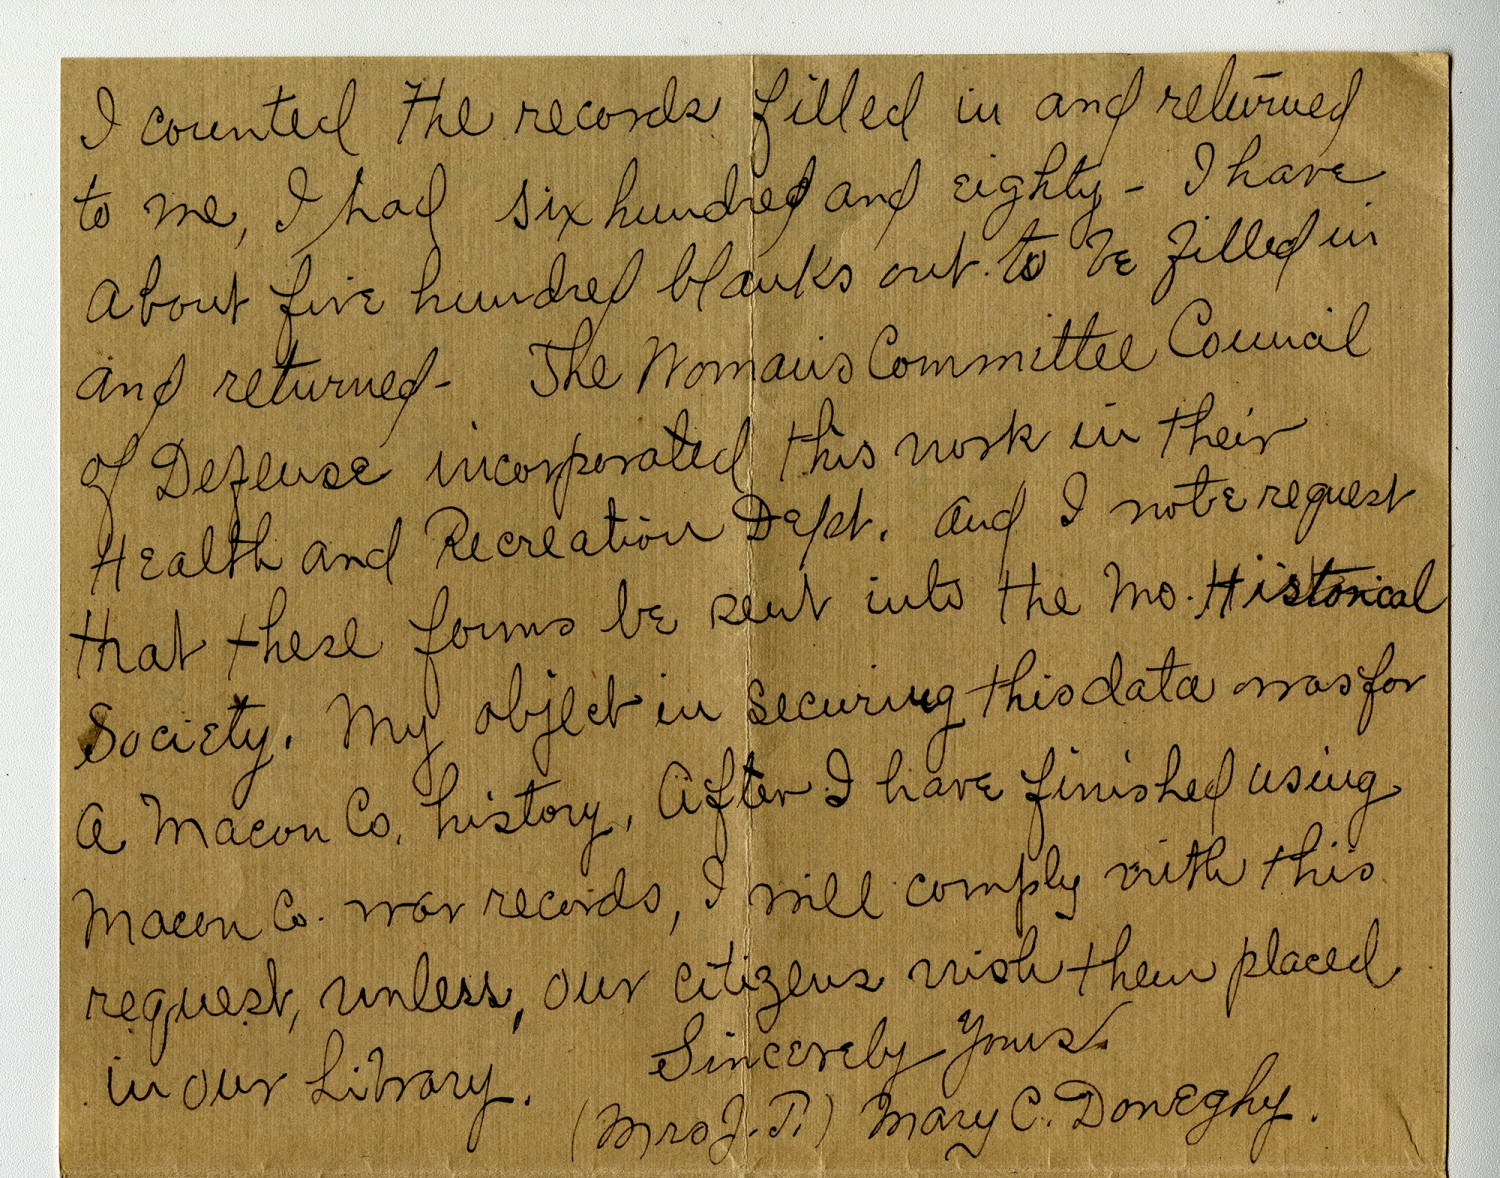 I counted the records filled in and returned
to me, I had six hundred and eighty - I have
about five hundred blanks out to be filled in
and returned - The Woman's Committee Council
of Defense incorporated this work in their
Health and Recreation Dept. and I note request
that these forms be sent into the Mo. Historical
Society. My object in securing this data was for
a Macon Co. history, After I have finished using
Macon Co. war records, I will comply with this
request, unless, our citizens wish them placed
in our Library. Sincerely Yours.
(Mrs J. T.) Mary C. Doneghy.